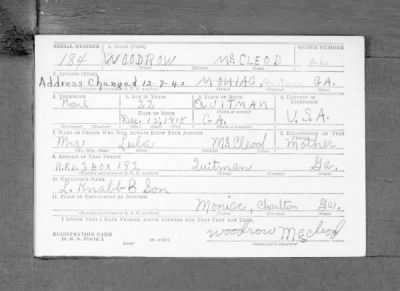 SERIAL NUMBER 1. NAME (Print) ORDER NUMBER
184 WOODROW McCLEOD 26
(First) (Middle) (Last)
2. ADDRESS (Print)
Address Changed 12-9-40 MONIAC, GA.
3. TELEPHONE 4. AGE IN YEARS 5. PLACE OF BIRTH 6. COUNTRY OF CITIZENSHIP
None 22 QUITMAN
DATE OF BIRTH
Dec. 15, 1918 GA. U.S.A.
7. NAME OF PERSON WHO WILL ALWAYS KNOW YOUR ADDRESS 8. RELATIONSHIP OF THAT PERSON
Mrs Lula McCleod Mother
9. ADDRESS OF THAT PERSON
R.F.D. 3 BOX 192 Quitman Ga.
10. EMPLOYER'S NAME
L. Knabb & Son
11. PLACE OF EMPLOYMENT OR BUSINESS
Moniac, Charlton Ga.
I AFFIRM THAT I HAVE VERIFIED ABOVE ANSWERS AND THAT THEY ARE TRUE.
REGISTRATION CARD
D. S. S. Form 1
Woodrow McCleod
(Registrant's signature)